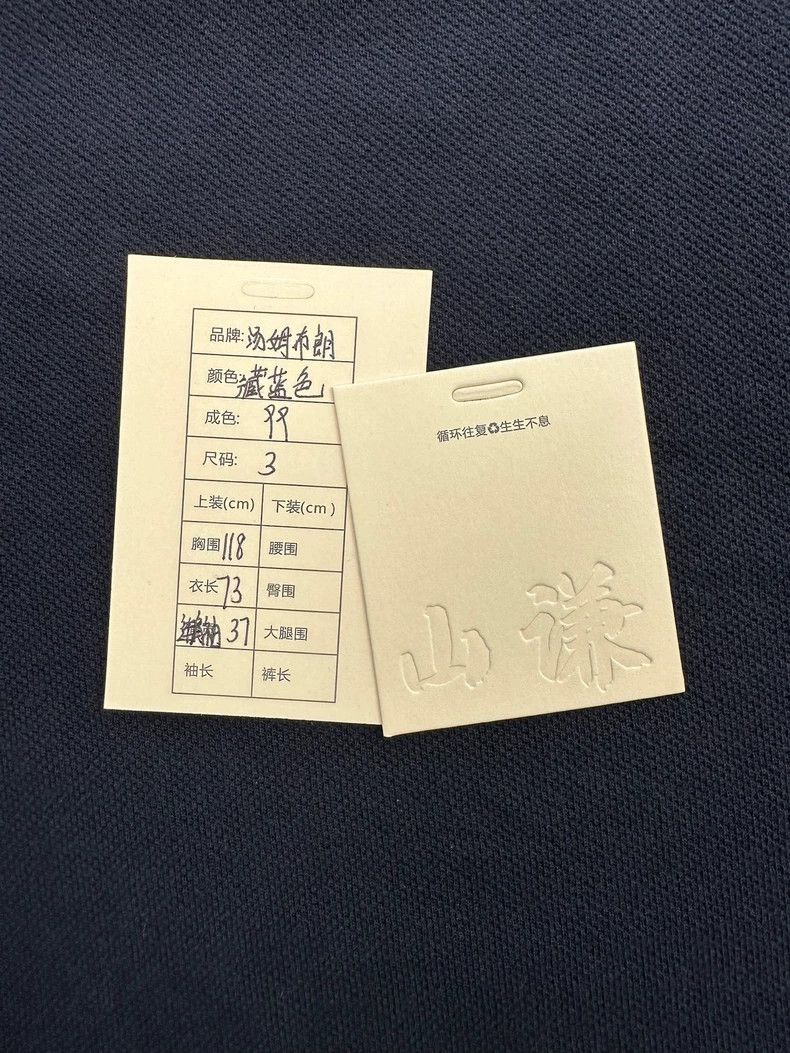 品牌:汤姆布朗
颜色:藏蓝色
成色: 99
尺码: 3
上装(cm) 下装(cm)
胸围118 腰围
衣长73 臀围
37 大腿围
袖长 裤长
循环往复♻生生不息
山谦